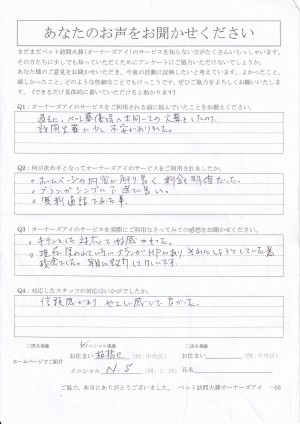 あなたのお声をお聞かせください
まだまだペット訪問火葬(オーナーズアイ)のサービスを知らない方がたくさんいらっしゃいます。
その方たちに少しでも知っていただくためにアンケートにご協力いただけないでしょうか。
あなた様のご意見をお聞かせいただき、今後の活動に反映したいと考えています。よかったこと、
嬉しかったこと、どのような些細なことでもけっこうです。ぜひご協力をよろしくお願いいたします。
(できるだけ具体的に書いていただけると助かります)
Q1:オーナーズアイのサービスをご利用される前に悩んでいたことをお教えください。
過去に、ペット葬儀場へ出向いての火葬をしたので、
訪問火葬に少し不安がありました。
Q2:何が決め手となってオーナーズアイのサービスをご利用されましたか。
○ホームページの内容が解り易く、料金も明確だった。
○プランがシンプルで選び易い。
○無料通話であった事。
Q3:オーナーズアイのサービスを実際にご利用なさってみての感想をお聞かせください。
○キチンとした対応で好感がもてた。
○現在
プランがHPにあり、それにしようとしていた為
残念でした。早目に
Q4:対応したスタッフの対応はいかがでしたか。
信頼感があり やさしい感じで良かった。
ホームページでご紹介
イニシャル掲載
お住まい 板橋区 (例:中央区)
イニシャル N.S (例:J.H)
お住まい (例:中央区)
氏名
ご協力、本当にありがとうございました。 ペット訪問火葬オーナーズアイ 一同